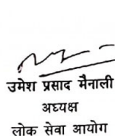 उमेश प्रसाद मैनाली
अध्यक्ष
लोक सेवा आयोग